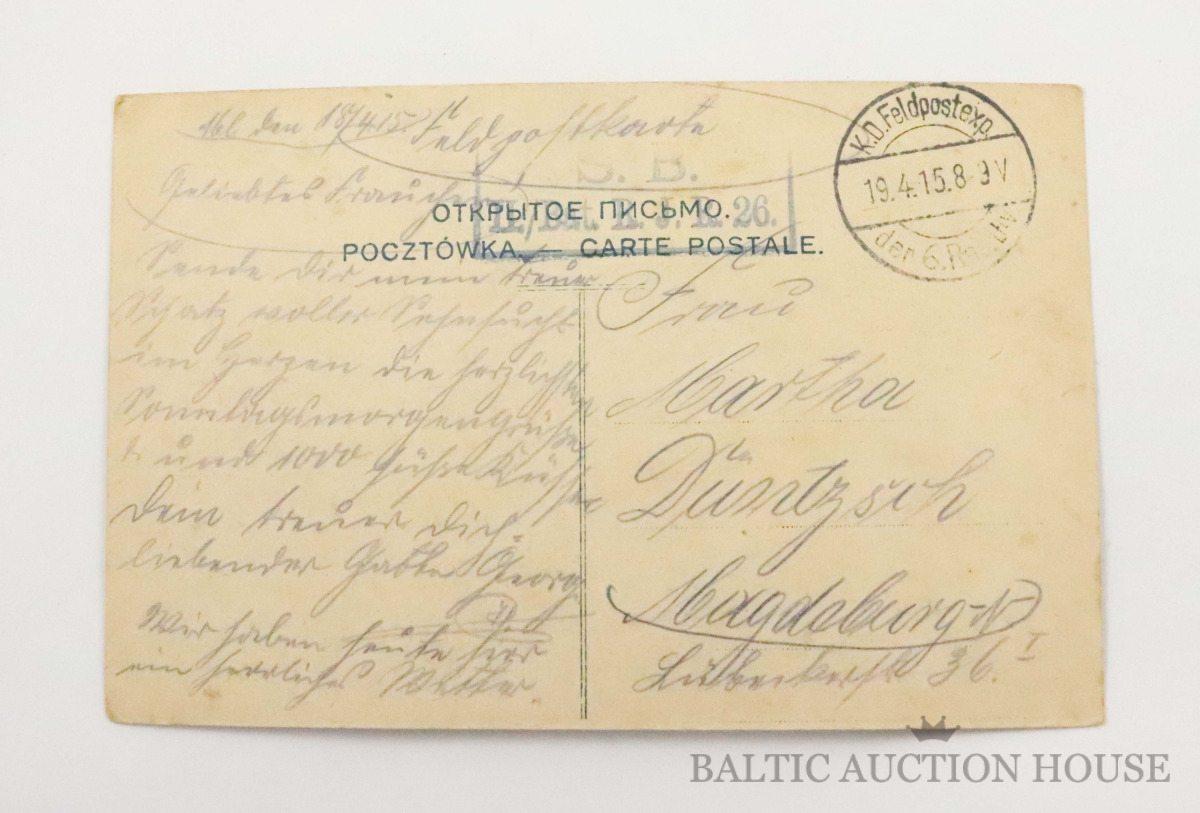 den 18/4.15.
Feldpostkarte
Geliebtes Frauchen
S. B.
II./Bat. R. J. R. 26.
K.D. Feldpostexp.
19.4.15.8-9V
der 6. Res. Div
ОТКРЫТОЕ ПИСЬМО.
POCZTÓWKA. — CARTE POSTALE.
Sende dir mein treuer
Schatz voller Sehnsucht
im Herzen die herzlichsten
Sonntagsmorgengrüße
und 1000 süße Küsse
Dein treuer dich
liebender Gatte Georg
Wir haben heute hier
ein herrliches Wetter.
Frau
Martha
Düntzsch
Magdeburg-N
Lübeckerstr 36 I
BALTIC AUCTION HOUSE